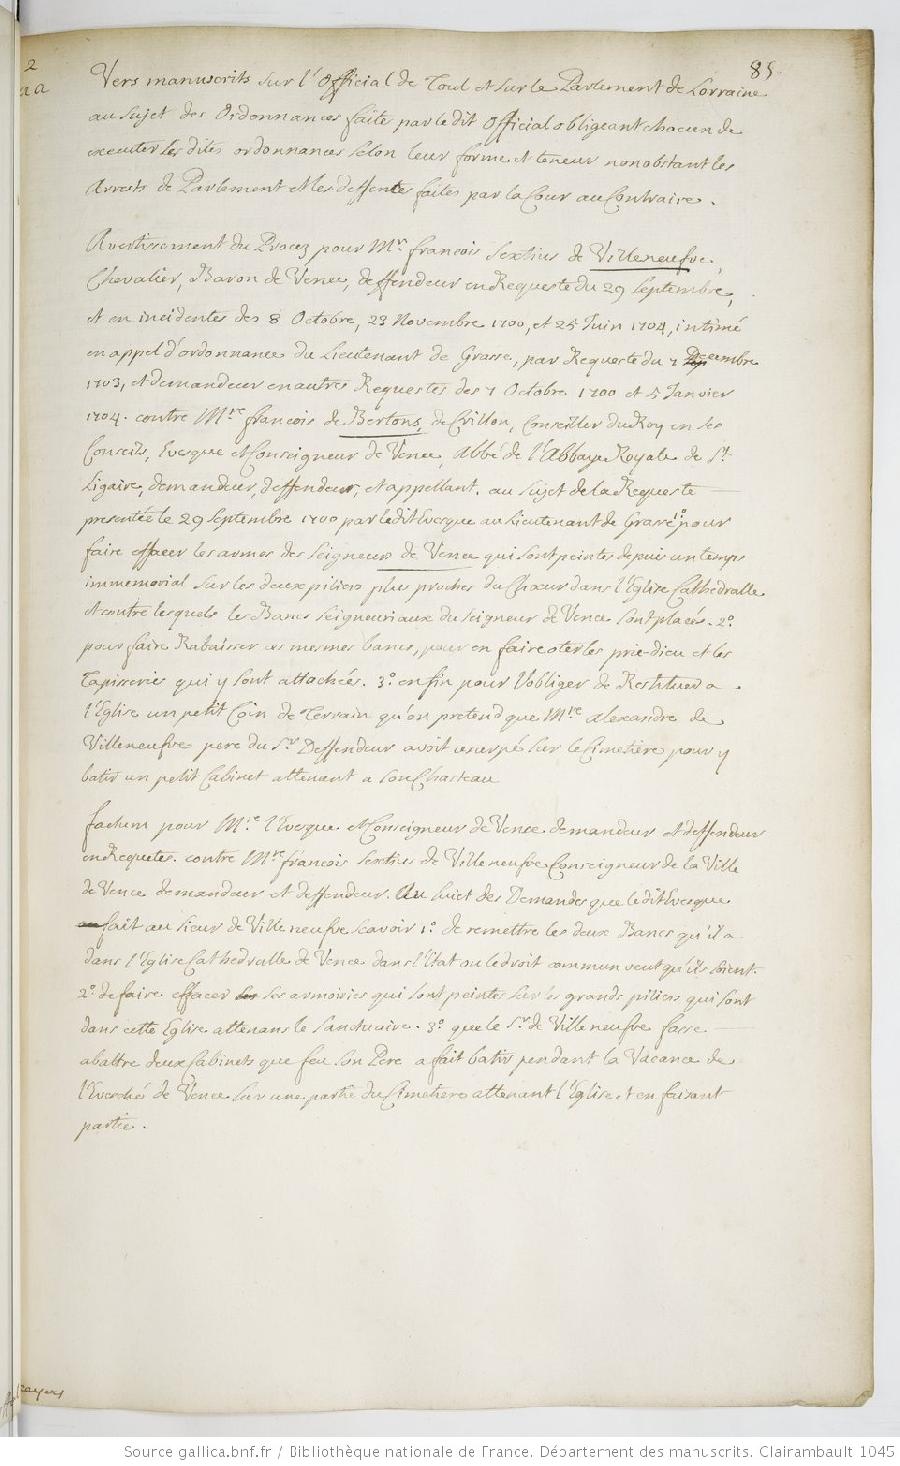 85
Vers manuscrits sur l'Official de Toul et sur le Parlement de Lorraine
au sujet des Ordonnances faites par le dit Official obligeant chacun de
executer les dites ordonnances selon leur forme et teneur nonobstant les
Arrests de Parlement et les deffences faites par la Cour au Contraire.
Avertissement du Procez pour Mre. françois Sextius de Villeneufve,
Chevalier, Baron de Vence, deffendeur en Requeste du 29 Septembre,
et en incidentes des 8 Octobre, 23 Novembre 1700, et 25 Juin 1704, intimé
en appel d'ordonnance du Lieutenant de Grasse, par Requeste du 7 Decembre
1703, et demandeur en autres Requestes des 7 Octobre 1700 et 5 Janvier
1704. contre Mre françois de Bertons, de Crillon, Conseiller du Roy en ses
Conseils, Evesque et Conseigneur de Vence, abbé de l'Abbaye Royale de St.
Ligaire, demandeur, deffendeur, et appellant. au sujet de la Requeste
presentée le 29 Septembre 1700 par le dit Evesque au Lieutenant de Grasse 1º. pour
faire effacer les armes des Seigneurs de Vence qui sont peintes depuis un temps
immemorial sur les deux piliers plus proches du Choeur dans l'Eglise Cathedralle
et contre lesquels les Bancs Seigneuriaux du Seigneur de Vence sont placés. 2º.
pour faire Rabaisser ces mesmes bancs, pour en faire oter les prie-dieu et les
Tapisseries qui y sont attachées. 3º. enfin pour l'obliger de Restituer a
l'Eglise un petit Coin de Terrain qu'on pretend que Mre alexandre de
Villeneufve pere du Sr. Deffendeur avoit usurpé sur le Cimetière pour y
batir un petit Cabinet attenant a son Chasteau
factum pour Mre l'Evesque et Conseigneur de Vence demandeur et deffendeur
en Requetes. contre Mre françois Sextius de Villeneufve Conseigneur de la Ville
de Vence demandeur et deffendeur. Au Sujet des Demandes que le dit Evesque
fait au sieur de Villeneufve scavoir 1º. de remettre les deux Bancs qu'il a
dans l'Eglise Cathedralle de Vence dans l'Etat ou le droit commun veut qu'ils soient.
2º. de faire effacer ses armoiries qui sont peintes sur les grands piliers qui sont
dans cette Eglise attenans le Sanctuaire. 3º que le Sr. de Villeneufve fasse
abattre deux Cabinets que feu son Pere a fait batir pendant la Vacance de
l'Evesché de Vence sur une partie du Cimetiere attenant l'Eglise et en faisant
partie.
Source gallica.bnf.fr / Bibliothèque nationale de France. Département des manuscrits. Clairambault 1045